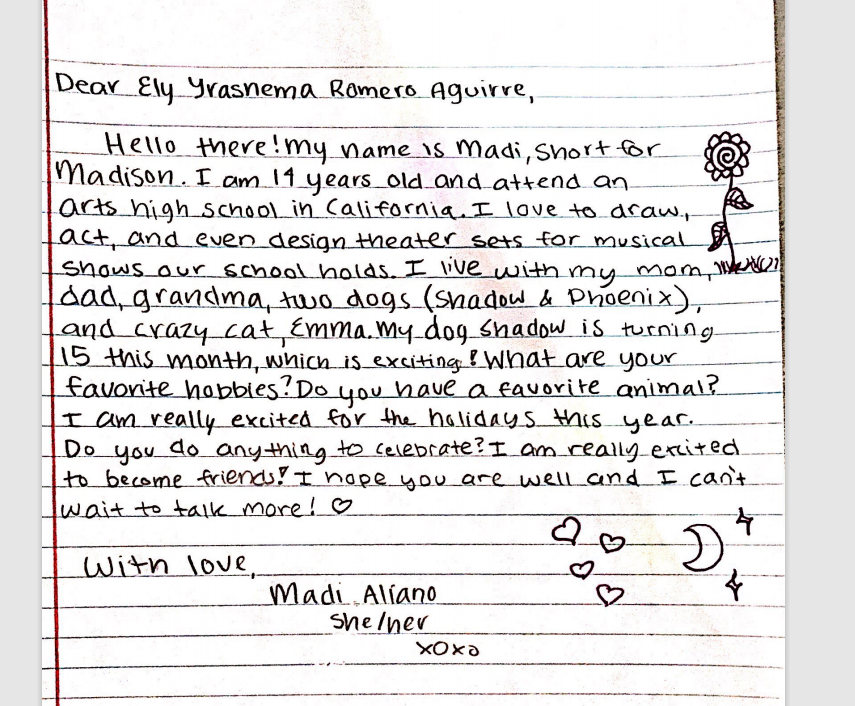 Dear Ely Yrasnema Romero Aguirre,
Hello there! My name is Madi, short for
Madison. I am 14 years old and attend an
arts high school in California. I love to draw,
act, and even design theater sets for musical
shows our school holds. I live with my mom,
dad, grandma, two dogs (Shadow & Phoenix),
and crazy cat, Emma. My dog Shadow is turning
15 this month, which is exciting! What are your
favorite hobbies? Do you have a favorite animal?
I am really excited for the holidays this year.
Do you do anything to celebrate? I am really excited
to become friends! I hope you are well and I can't
wait to talk more! ♡
With love,
Madi Aliano
she/her
xoxo